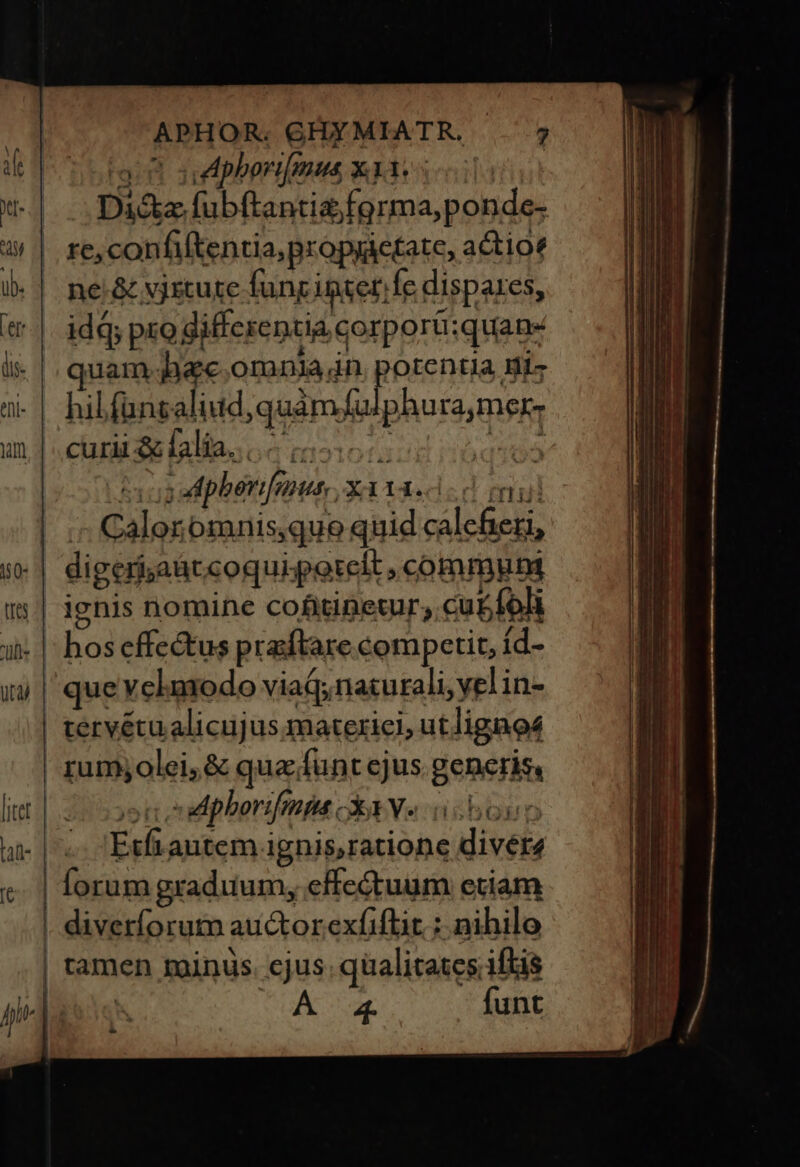 APHOR. CHYMIATR. 7
Aphorismus XII.
Dictæ substantiæ, forma, ponde-
re, consistentia, proprietate, actio-
ne & virtute sunt inter se dispares,
idq; pro differentia corporũ: quan-
quam hæc omnia in potentia ni-
hil sunt aliud, quàm sulphura, mer-
curii & salia.
Aphorismus, XIII.
Calor omnis, quo quid calefieri,
digeri, aut coqui potest, communi
ignis nomine cõtinetur, cui soli
hos effectus præstare competit, íd-
que vel modo viaq; naturali, vel in-
tervétu alicujus materiei, ut ligno-
rum, olei, & quæ sunt ejus generis.
Aphorismus XIV.
Etsi autem ignis, ratione diver-
sorum graduum, effectuum etiam
diversorum auctor exsistit: nihilo
tamen minùs ejus qualitates istis
A 4 sunt